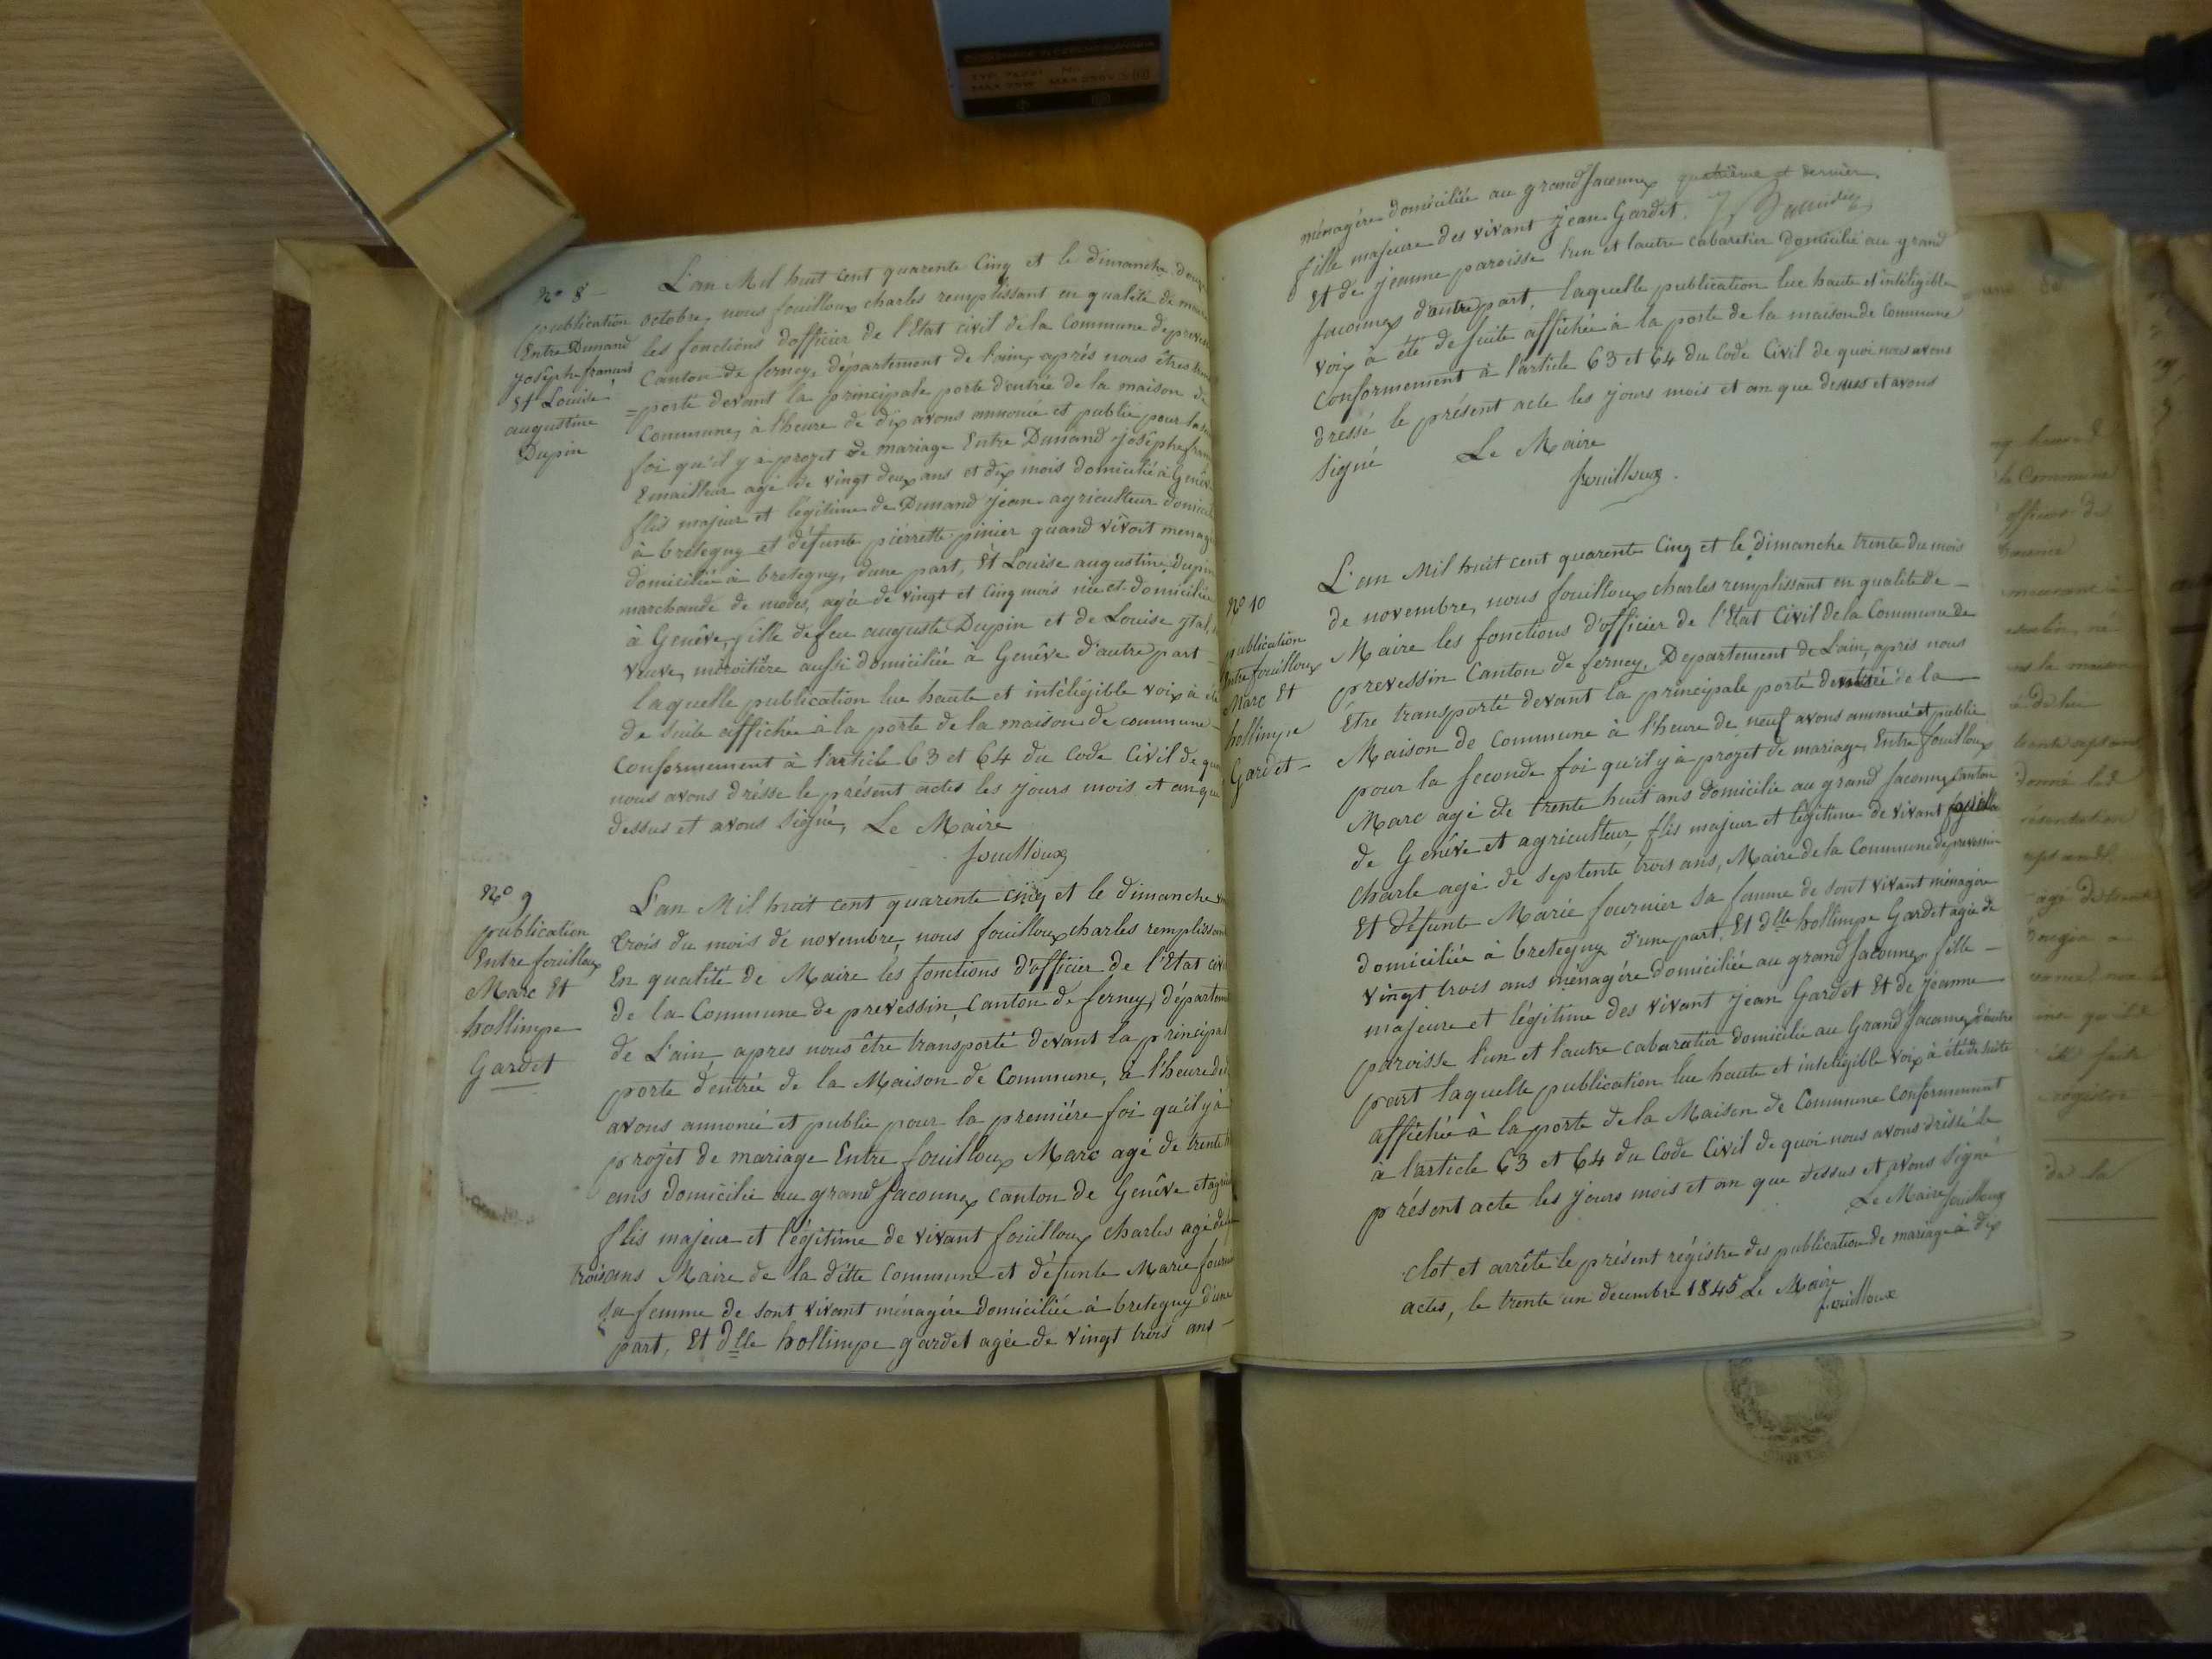 N° 8 -
publication
Entre Dunand
Josèphe françois
Et Louise
augustine
Dupin
L'an Mil huit cent quarente Cinq et le dimanche
octobre, nous fouilloux charles remplissant en qualité de maire
les fonctions d'officier de l'Etat civil de la Commune de prevessin
Canton de ferney, département de l'ain, aprés nous être
=porté devant la principale porte d'entrée de la maison de
Commune, à l'heure de dix avons annoncé et publié pour la
foi qu'il y à projet de mariage Entre Dunand josèphe
Emailleur agé de vingt deux ans et dix mois domicilié à Genève
flis majeur et légitime de Dunand jean agriculteur
à bretegny et défunte pierrette pinier quand vivoit
domiciliée à bretegny, d'une part, Et Louise augustine Dupin
marchande de modes, agée de vingt et Cinq mois née et domiciliée
à Genêve, fille de feu auguste Dupin et de Louise
veuve, miroitière aussi domiciliée à Genêve d'autre part -
laquelle publication lue haute et intéligible voix à été
de suite affichée à la porte de la maison de commune -
Conformement à l'article 63 et 64 du Code Civil de quoi
nous avons dréssé le présent actes les jours mois et an que
dessus et avons signé, Le Maire
fouilloux
N° 9
publication
Entre fouilloux
Marc Et
hollimpe
Gardet
L'an Mil huit cent quarente cinq et le dimanche
trois du mois de novembre, nous fouilloux charles remplissant
En qualité de Maire les fonctions d'officier de l'Etat civil
de la Commune de prevessin, Canton de ferney, département
de L'ain apres nous être transporté devant la principale
porte d'entrée de la Maison de Commune, à l'heure
avons annoncé et publié pour la premiére foi qu'il y à
projet de mariage Entre fouilloux Marc agé de trente
ans domicilié au grand Saconnex canton de Genêve et
flis majeur et légitime de vivant fouilloux Charles agé de
trois ans Maire de la ditte Commune et défunte Marie
sa femme de sont vivant ménagére domiciliée à bretegny d'une
part, Et dlle hollimpe gardet agée de vingt trois ans -
ménagére domiciliée au grand Saconnex quatrième et dernier.
fille majeure des vivant jean Gardet.
Et de jeanne paroisse l'un et l'autre cabaretier Domicilié au grand
saconnex d'autre part, laquelle publication lue haute et intéligible
voix à été de suite affichée à la porte de la maison de Commune
Conformement à l'article 63 et 64 du Code Civil de quoi nous avons
dressé le présent acte les jours mois et an que dessus et avons
signé Le Maire
fouilloux.
N° 10
publication
Entre fouilloux
Marc Et
hollimpe
Gardet -
L'an Mil huit cent quarente Cinq et le dimanche trente du mois
de novembre, nous fouilloux charles remplissant en qualité de -
Maire les fonctions d'officier de l'Etat Civil de la Commune de
prevessin Canton de ferney, Departement de L'ain, apres nous
être transporté devant la principale porte d'entrée de la
Maison de Commune à l'heure de neuf avons annoncé et publié
pour la seconde foi qu'il y à projet de mariage, Entre fouilloux
Marc agé de trente huit ans domicilié au grand Saconnex Canton
de Genêve et agriculteur, flis majeur et légitime de vivant
Charle agé de septente trois ans, Maire de la Commune de prevessin
Et défunte Marie fournier sa femme de sont vivant ménagére
domiciliée à bretegny d'une part, Et dlle hollimpe Gardet agée de
vingt trois ans ménagére domiciliée au grand Saconnex fille -
majeure et légitime des vivant jean Gardet Et de jeanne
paroisse l'un et l'autre cabaretier domicilié au Grand Saconnex d'autre
part laquelle publication lue haute et inteligible voix à été de suite
affichée à la porte de la Maison de Commune Conformement
à l'article 63 et 64 du Code Civil de quoi nous avons dréssé le
présent acte les jours mois et an que dessus et avons signé
Le Maire fouilloux
Clot et arrêté le présent régistre des publication de mariage à dix
actes, le trente un decembre 1845 Le Maire
fouilloux